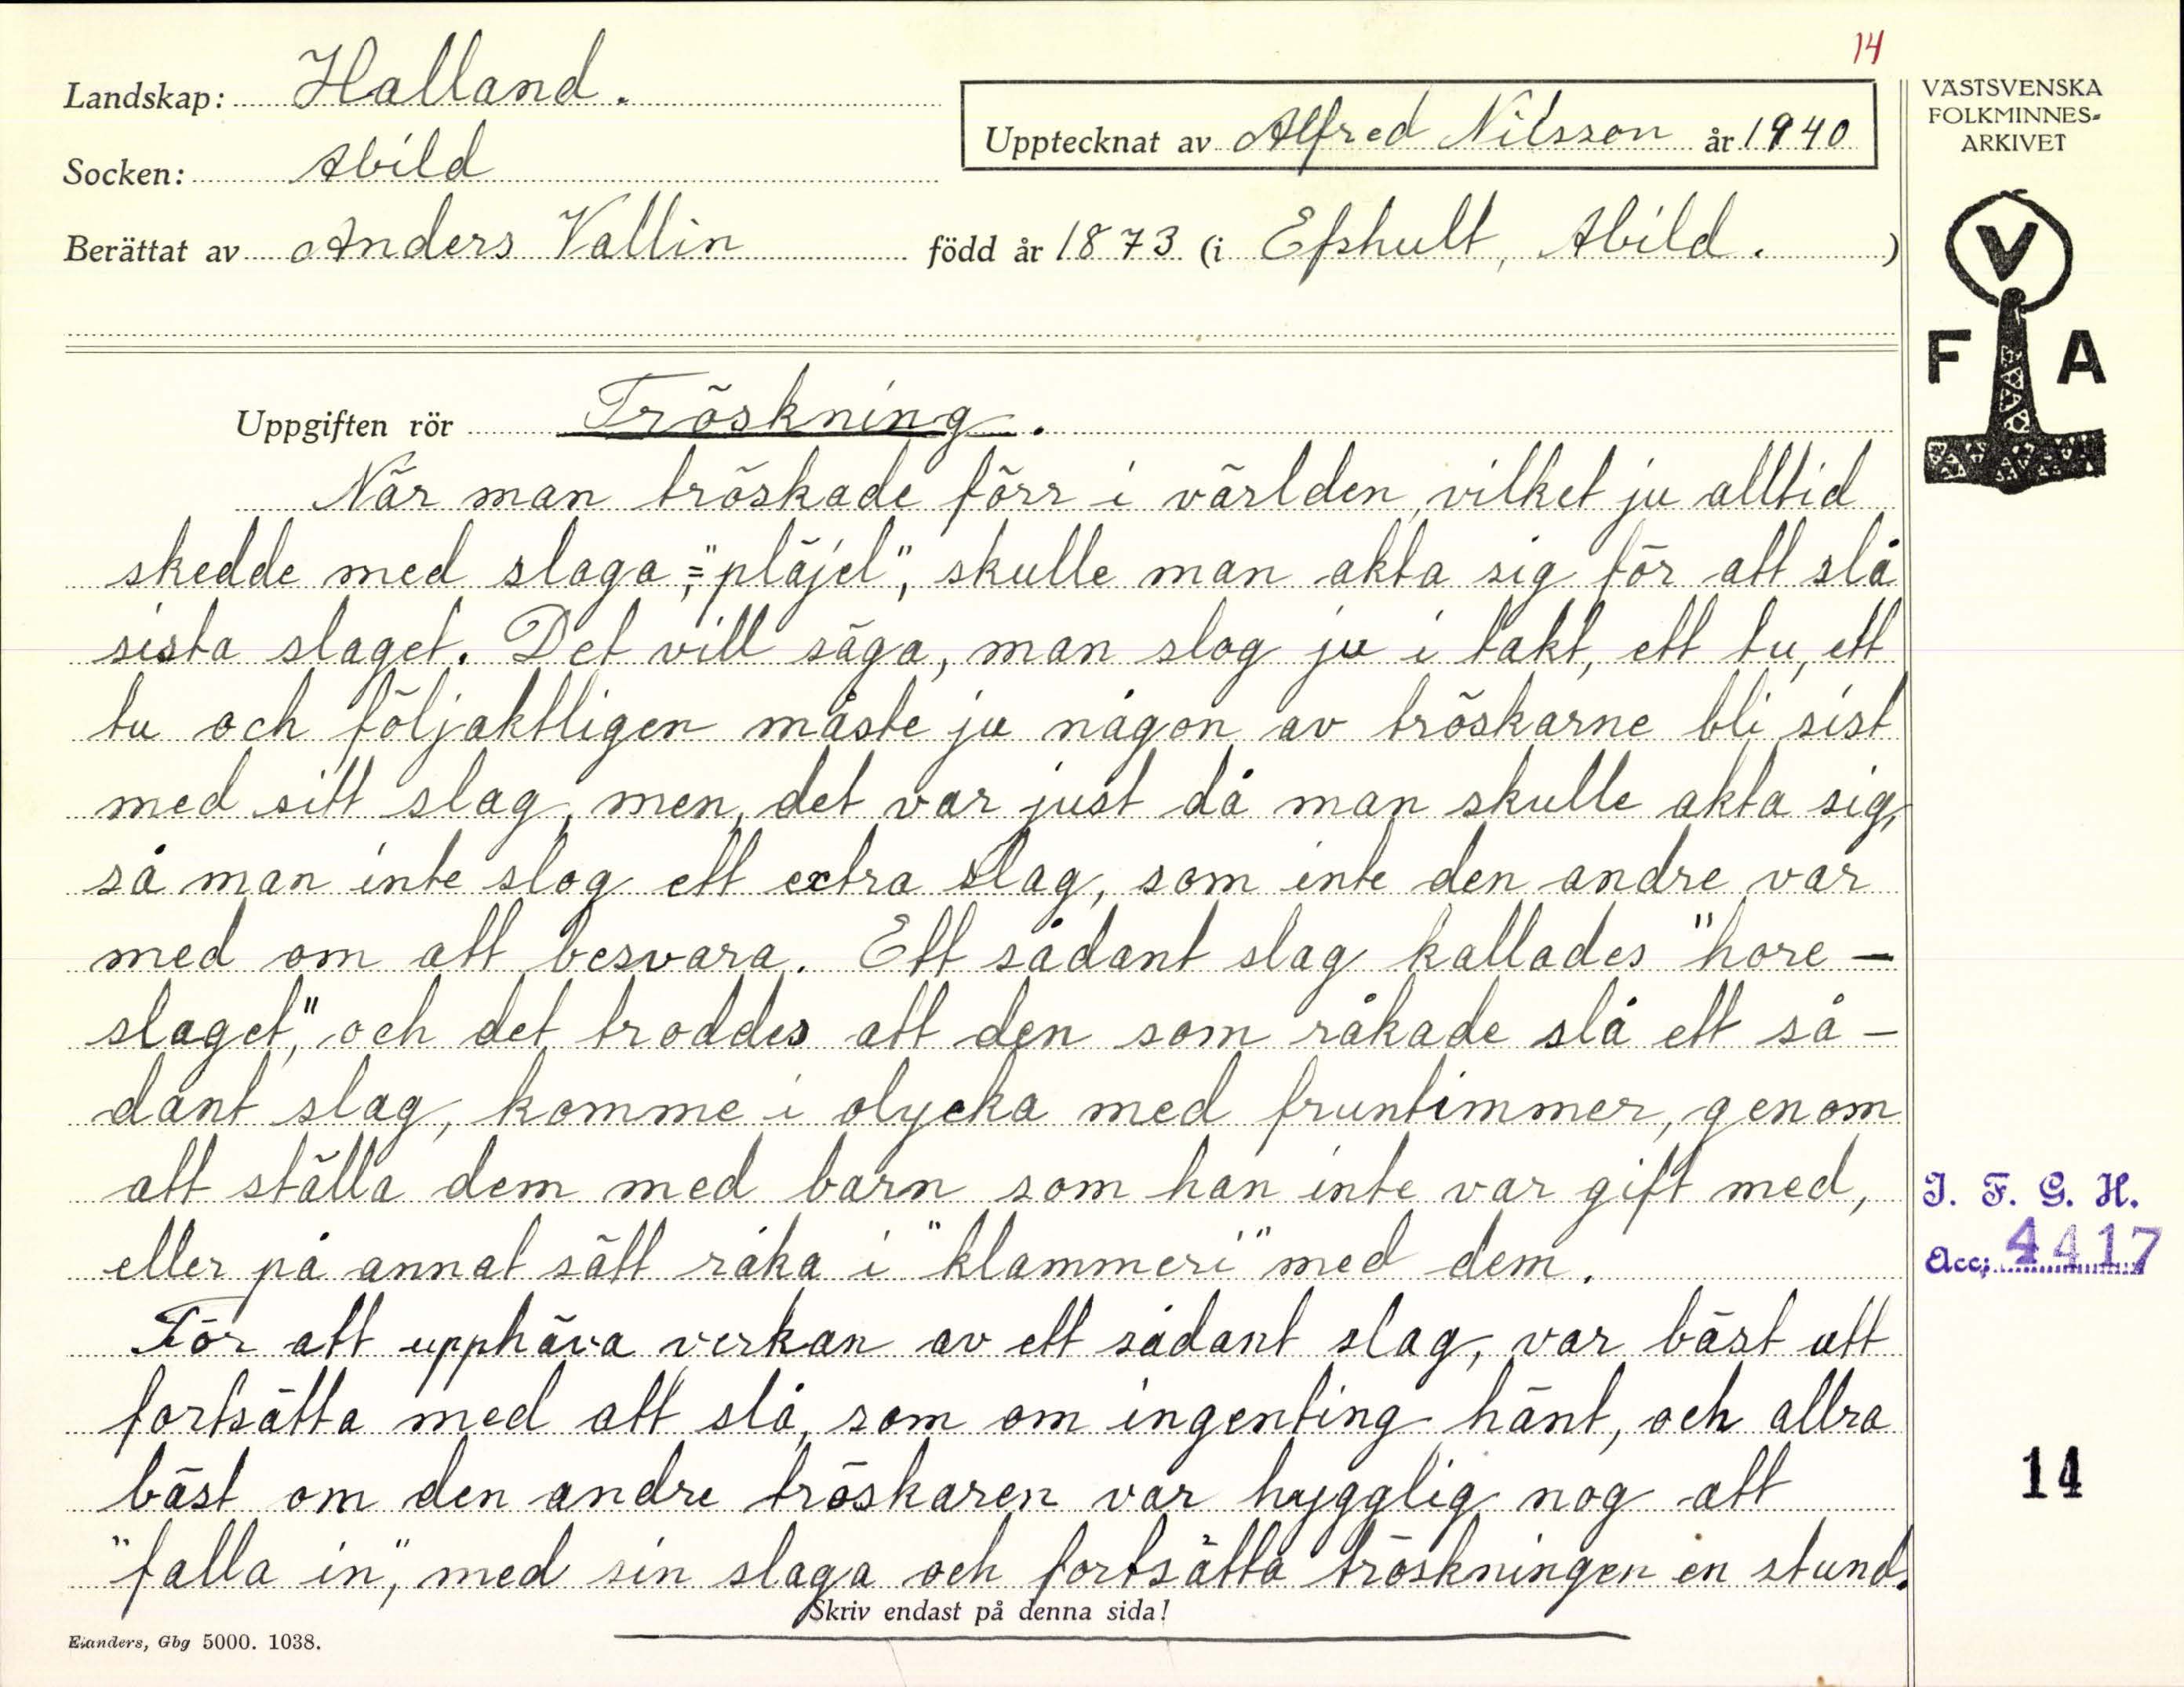 14
Landskap: Halland.
Socken: Abild
Berättat av Anders Vallin född år 1873 (i Efshult, Abild. )
Upptecknat av Alfred Nilsson år 1940
VÄSTSVENSKA
FOLKMINNES-
ARKIVET
V
F A
Uppgiften rör Tröskning.
När man tröskade förr i världen, vilket ju alltid
skedde med slaga, = "pläjel", skulle man akta sig för att slå
sista slaget. Det vill säga, man slog ju i takt, ett tu, ett
tu och följaktligen måste ju någon av tröskarne bli sist
med sitt slag, men, det var just då man skulle akta sig,
så man inte slog ett extra slag, som inte den andre var
med om att besvara. Ett sådant slag kallades "hore-
slaget," och det troddes att den som råkade slå ett så-
dant slag, komme i olycka med fruntimmer, genom
att ställa dem med barn som han inte var gift med,
eller på annat sätt råka i "klammeri" med dem.
För att upphäva verkan av ett sådant slag, var bäst att
fortsätta med att slå, som om ingenting hänt, och allra
bäst om den andre tröskaren var hygglig nog att
"falla in", med sin slaga och fortsätta tröskningen en stund.
Skriv endast på denna sida!
Elanders, Gbg 5000. 1038.
I. F. G. H.
Acc; 4417
14